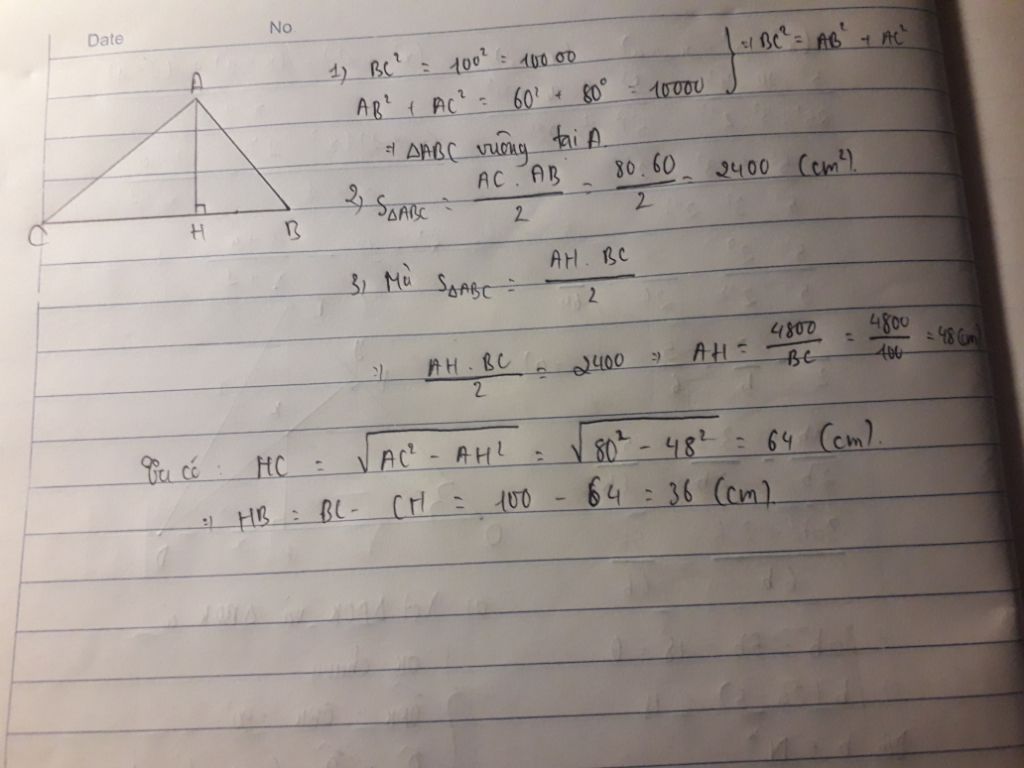 Date No
A
C H B
1) BC² = 100² = 10000
AB² + AC² = 60² + 80⁰ = 10000 } => BC² = AB² + AC²
=> ΔABC vuông tại A.
2) S△ABC = AC . AB / 2 = 80.60 / 2 = 2400 (cm²).
3) Mà S△ABC = AH . BC / 2
=> AH . BC / 2 = 2400 => AH = 4800 / BC = 4800 / 100 = 48 (cm)
Ta có : HC = √AC² - AH² = √80² - 48² = 64 (cm).
=> HB = BC - CH = 100 - 64 = 36 (cm).